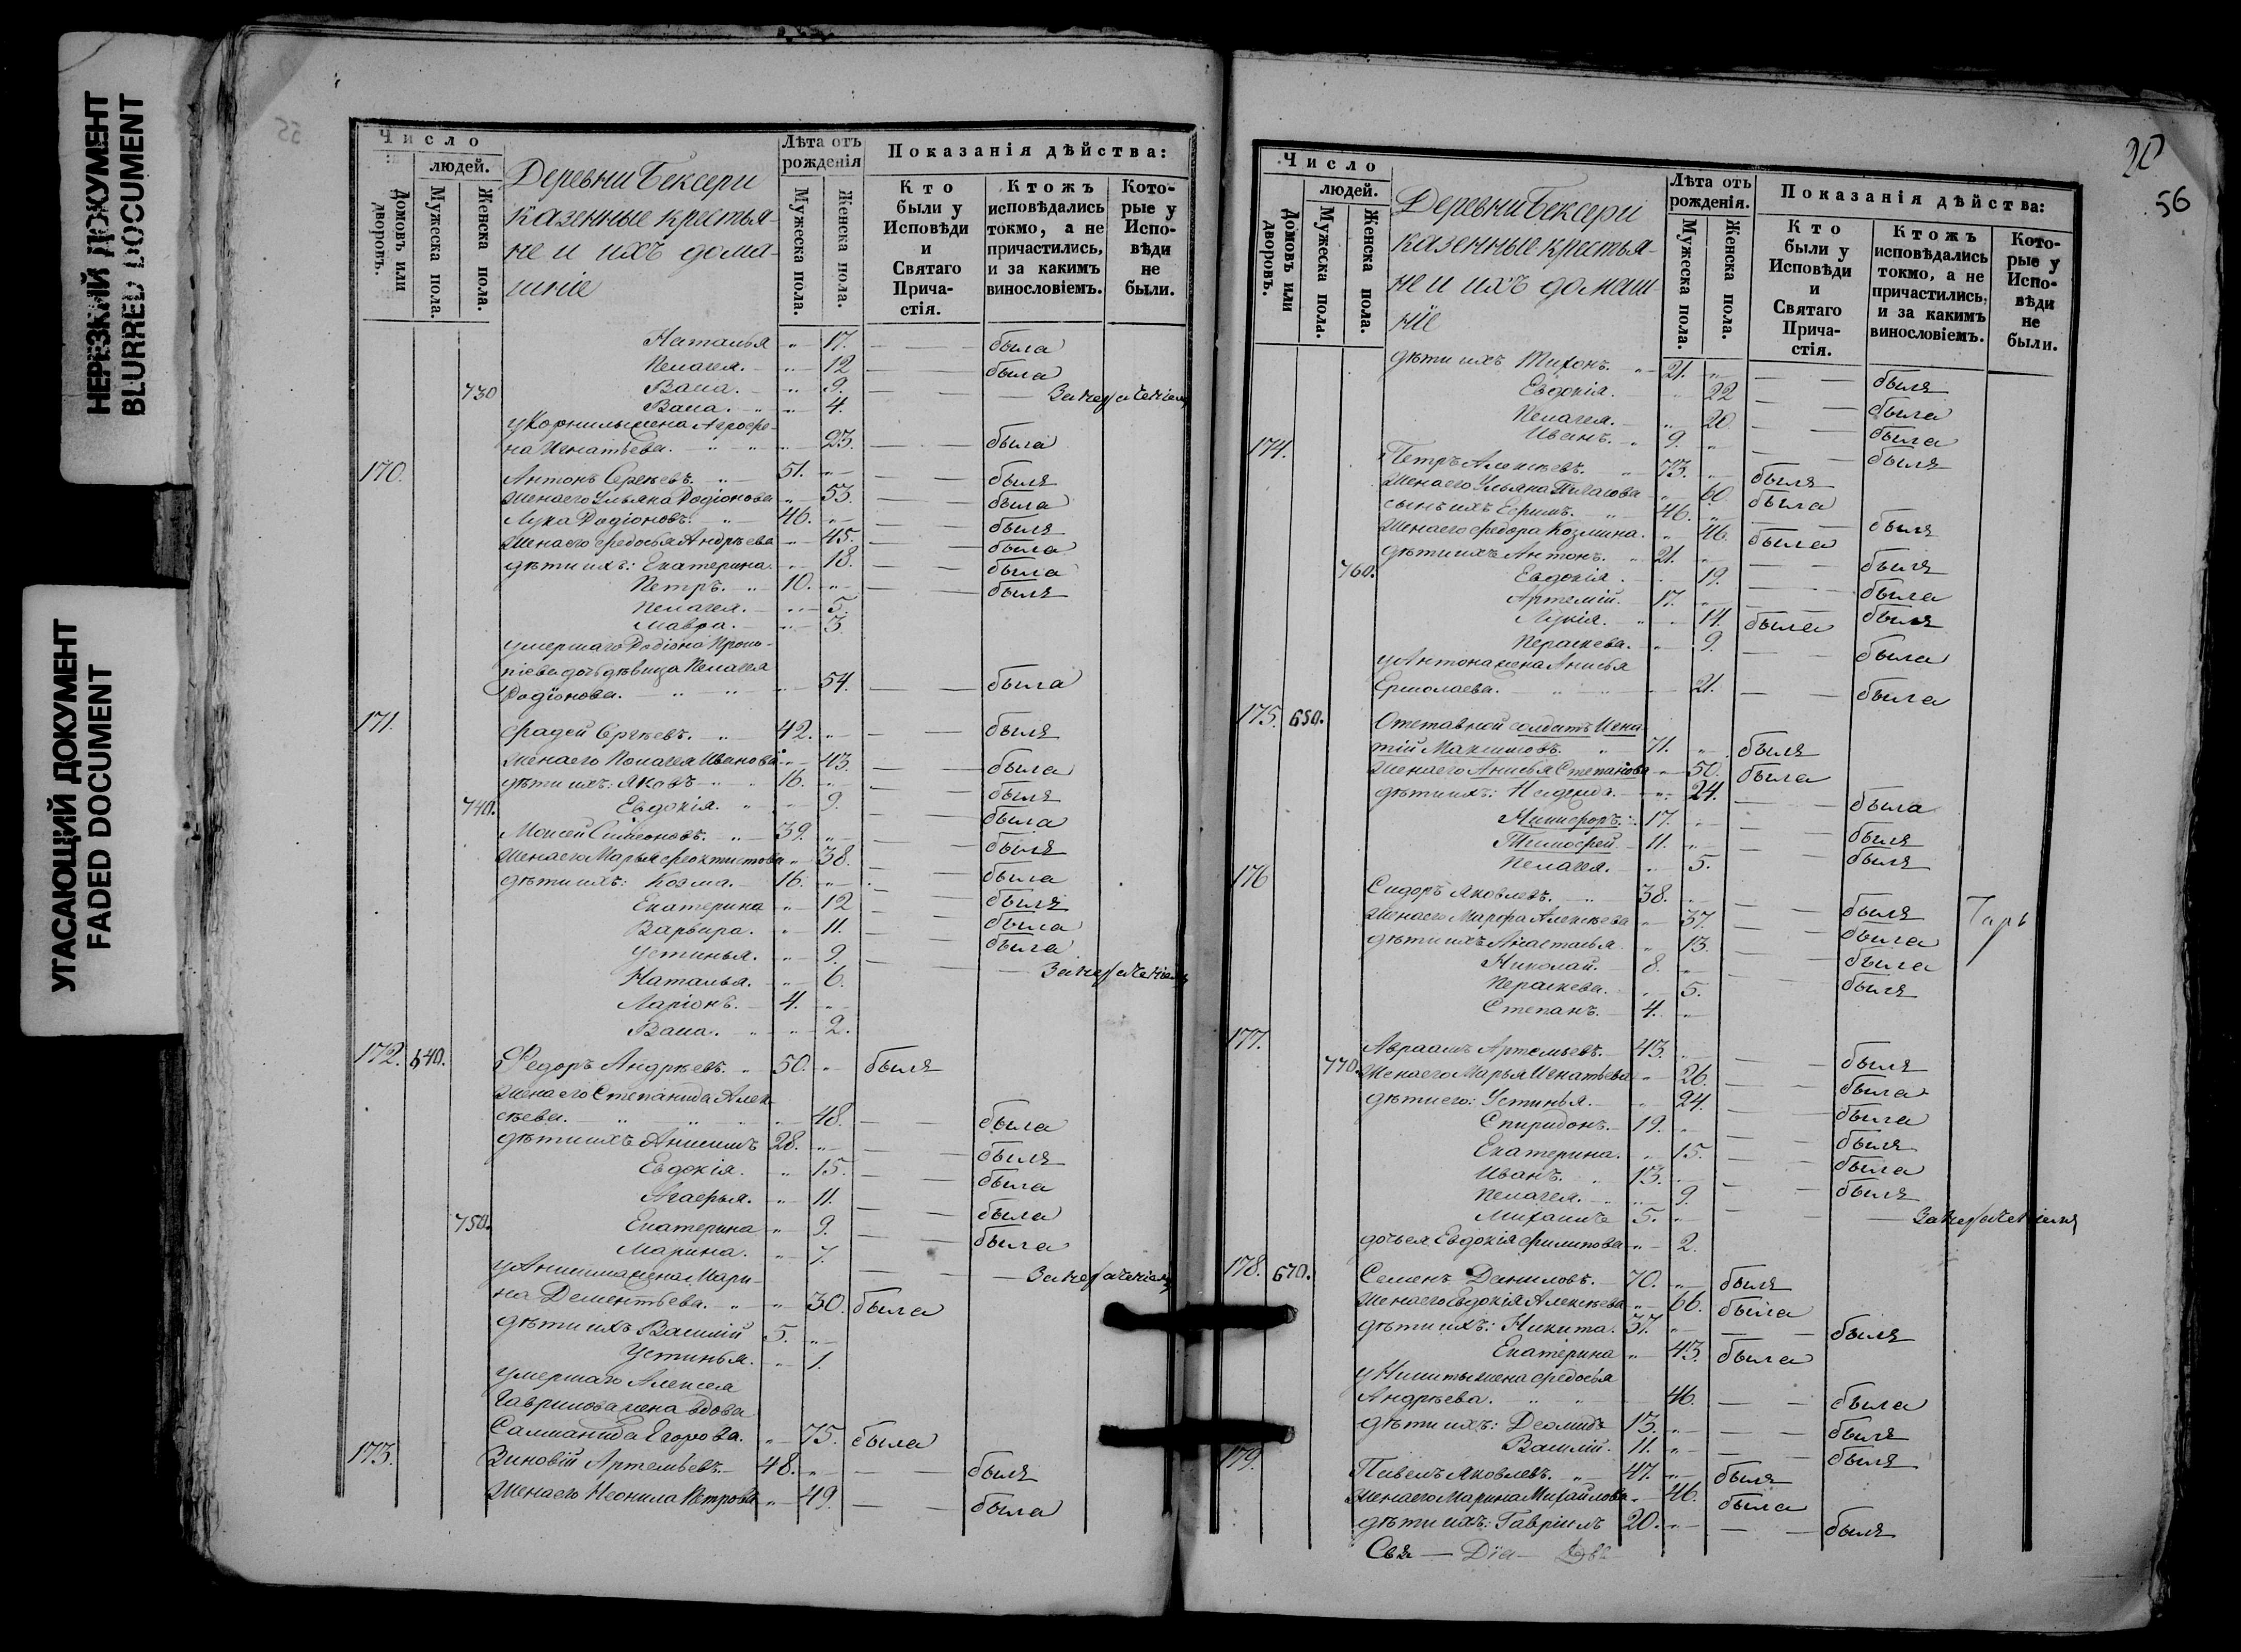 НЕРЕЗКИЙ ДОКУМЕНТ
BLURRED DOCUMENT
УГАСАЮЩИЙ ДОКУМЕНТ
FADED DOCUMENT
Число
людей.
Домовъ или дворовъ.
Мужеска пола.
Женска пола.
Деревни Бексери
казенные крестья-
не и ихъ дома-
шніе
Лѣта отъ рожденія
Мужеска пола.
Женска пола.
Показанія дѣйства:
Кто были у Исповѣди и Святаго Прича-стія.
Ктожъ исповѣдались токмо, а не причастились, и за какимъ винословіемъ.
Кото-рые у Испо-вѣди не были.
Наталья " 17. была
Пелагея. " 12 была
730 Васа. " 9.
Васа. " 4.
у Корнилы жена Агрофе-
на Игнатьева. " 23. была
170. Антонъ Сергѣевъ. 51. " былъ
Жена его Ульяна Родіонова " 53. была
Лука Родіоновъ. 46. " былъ
Жена его Федосья Андрѣева " 45. была
дѣти ихъ: Екатерина. " 18. была
Петръ. 10. " былъ
Пелагея. " 5.
Мавра. " 3.
умершаго Родіона Проко-
піева дочь дѣвица Пелагея
Родіонова. " 54. была
171. Фадей Сергѣевъ. 42. " былъ
Жена его Пелагея Иванова " 43. была
дѣти ихъ: Яковъ 16. " былъ
740. Евдокія. " 9. была
Моисей Симеоновъ. 39. " былъ
Жена его Марья Феоктистова " 38. была
дѣти ихъ: Козма. 16. " былъ
Екатерина " 12 была
Варвара. " 11. была
Устинья. " 9.
Наталья. " 6.
Ларіонъ. 4. "
Васа. " 2.
172. 640. Федоръ Андрѣевъ. 50. " былъ
Жена его Степанида Алек-
сѣева. " 48. была
дѣти ихъ Анисимъ 28. " былъ
Евдокія. " 15. была
Агафья. " 11. была
750. Екатерина " 9. была
Марина. " 7.
у Анисима жена Мари-
на Дементьева. " 30. была
дѣти ихъ Василій 5. "
Устинья. " 1.
умершаго Алексея
Гаврилова жена вдова
Саломанида Егорова. " 75. была
173. Зиновій Артемьевъ. 48. " былъ
Жена его Неонила Петрова " 49. была
20
56
Число
людей.
Домовъ или дворовъ.
Мужеска пола.
Женска пола.
Деревни Бексері
казенные крестья-
не и ихъ домаш-
ніе
Лѣта отъ рожденія.
Мужеска пола.
Женска пола.
Показанія дѣйства:
Кто были у Исповѣди и Святаго Прича-стія.
Ктожъ исповѣдались токмо, а не причастились, и за какимъ винословіемъ.
Кото-рые у Испо-вѣди не были.
дѣти ихъ Тихонъ. 21. " былъ
Евдокія. " 22 была
Пелагея. " 20 была
Иванъ. 9. " былъ
174. Петръ Алексѣевъ. 73. " былъ
Жена его Ульяна " 60. была
сынъ ихъ Ефимъ. 46. " былъ
Жена его Федора Козмина. " 46. была
дѣти ихъ Антонъ. 21. " былъ
760. Евдокія. " 19. была
Артемій. 17. " былъ
Лукія. " 14. была
Пераскева. " 9. была
у Антона жена Анисья
Ермолаева. " 21. была
175. 650. Отставной солдатъ Игна
тій Максимовъ. 71. " былъ
Жена его Анисья Степанова " 50. была
дѣти ихъ: Надежда. " 24. была
Никифоръ. 17. " былъ
Тимофей. 11. " былъ
Пелагея. " 5.
176 Сидоръ Яковлевъ. 38. " былъ
Жена его Марфа Алексѣева " 37. была
дѣти ихъ Анастасья. " 13. была
Николай. 8. " былъ
Пераскева. " 5.
Степанъ. 4. "
177. Авраамъ Артемьевъ. 43. " былъ
770. Жена его Марья Игнатьева " 26. была
дѣти его: Устинья. " 24. была
Спиридонъ. 19. " былъ
Екатерина. " 15. была
Иванъ. 13. " былъ
Пелагея. " 9.
Михаилъ 5. "
дочь ея Евдокія Филипова " 2.
178. 670. Семенъ Даниловъ. 70. " былъ
Жена его Евдокія Алексѣева " 66. была
дѣти ихъ: Никита. 37. " былъ
Екатерина " 43. была
у Никиты жена Федосья
Андрѣева. " 46. была
дѣти ихъ: Деомидъ 13. " былъ
Василій. 11. " былъ
179. Павелъ Яковлевъ. 47. " былъ
Жена его Марина Михайлова " 46. была
дѣти ихъ: Гавріилъ 20. " былъ